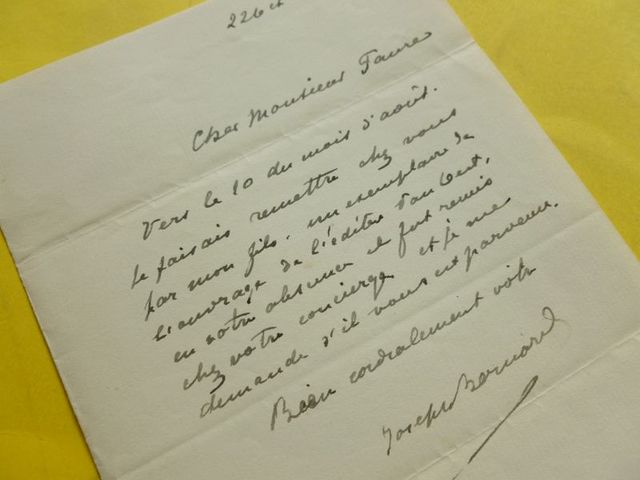 22 oct
Cher Monsieur Faure
Vers le 10 du mois d'août.
Je faisais remettre chez vous
par mon fils. un exemplaire de
l'ouvrage de l'éditeur
en votre absence il fut remis
chez votre concierge et je me
demande s'il vous est parvenu.
Bien cordialement vôtre
Joseph Bernard